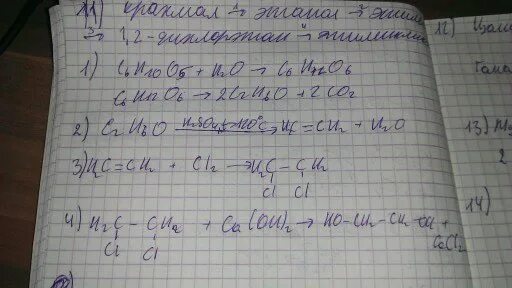 11) крахмал 1→ этанол 2→ этилен
3→ 1,2-дихлорэтан 4→ этиленгликоль
1) C6H10O5 + H2O → C6H12O6
C6H12O6 → 2C2H6O + 2CO2
2) C2H6O H2SO4, t>140°C→ H2C=CH2 + H2O
3) H2C=CH2 + Cl2 → H2C—CH2
Cl Cl
4) H2C—CH2 + Ca(OH)2 → HO-CH2-CH2-OH +
Cl Cl CaCl2
12)
13)
2
14)